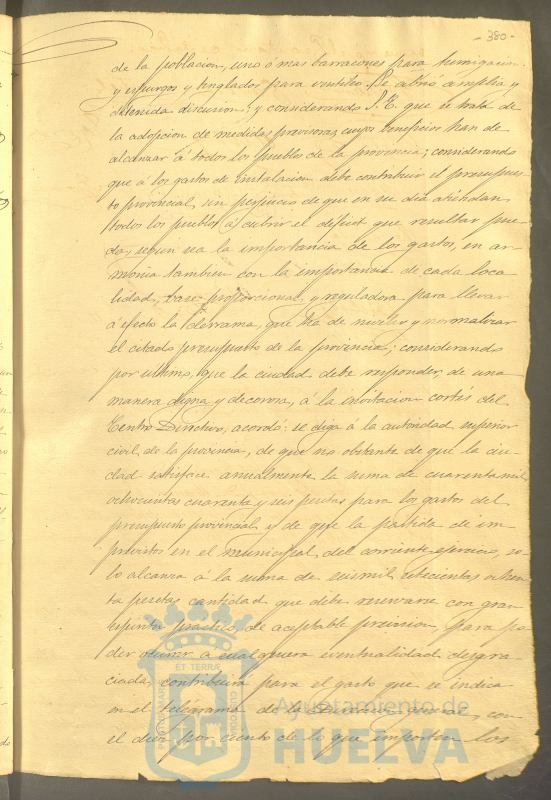 - 380 -
de la poblacion, uno ó mas barracones para fumigacion
y espurgos y tinglados para ventileo. Se abrió ámplia y
detenida discusion; y considerando S. E. que se trata de
la adopcion de medidas previsoras cuyos beneficios han de
alcanzar á todos los pueblos de la provincia; considerando
que á los gastos de instalacion debe contribuir el presupues-
to provincial, sin perjuicio de que en su dia atiendan
todos los pueblos á cubrir el déficit que resultar pue-
da, segun sea la importancia de los gastos, en ar-
monia tambien con la importancia de cada loca
lidad, base proporcional y reguladora para llevar
á efecto la derrama, que ha de nivelar y normalizar
el citado presupuesto de la provincia; considerando
por ultimo, que la ciudad debe responder, de una
manera digna y decorosa, á la invitacion cortés del
Centro Directivo, acordó: se diga á la autoridad superior
civil de la provincia, de que no obstante de que la ciu-
dad satisface anualmente la suma de cuarenta mil
ochocientas cuarenta y seis pesetas para los gastos del
presupuesto provincial, y de que la partida de im
previstos en el municipal del corriente ejercicio, so-
lo alcanza á la suma de seis mil setecientas ochen
ta pesetas cantidad que debe reservarse con gran
espiritu práctico, de aceptable prevision, para po
der ocurrir á cualquiera eventualidad desgra-
ciada, contribuirá para el gasto que se indica
en el telegrama de la Direccion general, con
el diez por ciento de lo que importen los
ET TERRÆ
Ayuntamiento de
HUELVA